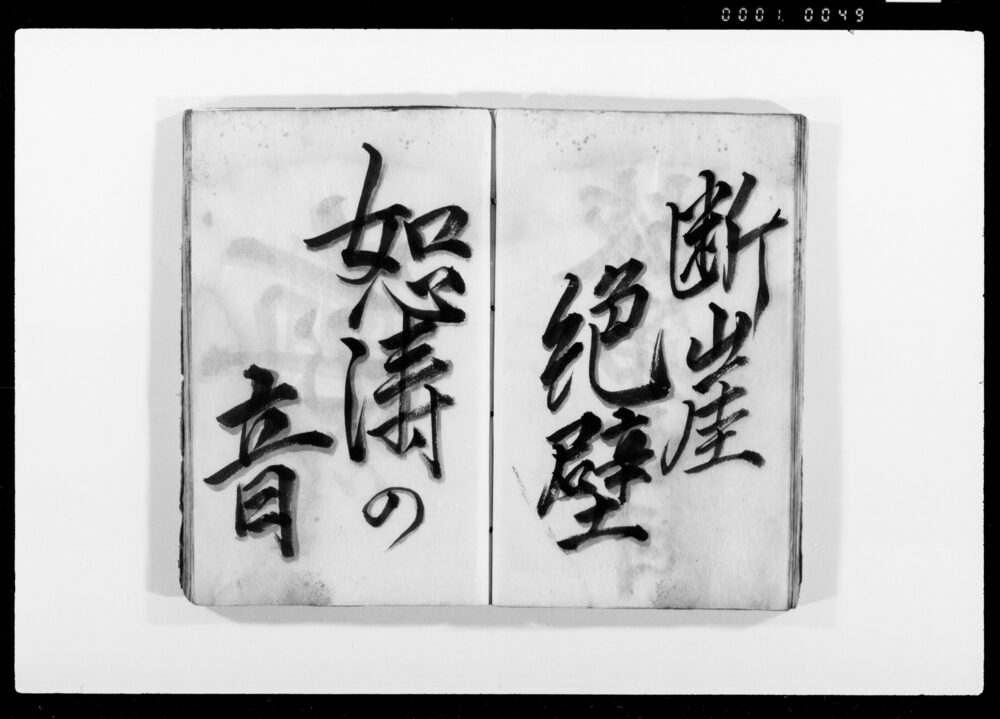 0001. 0049
断崖
絶壁
恕涛の
音